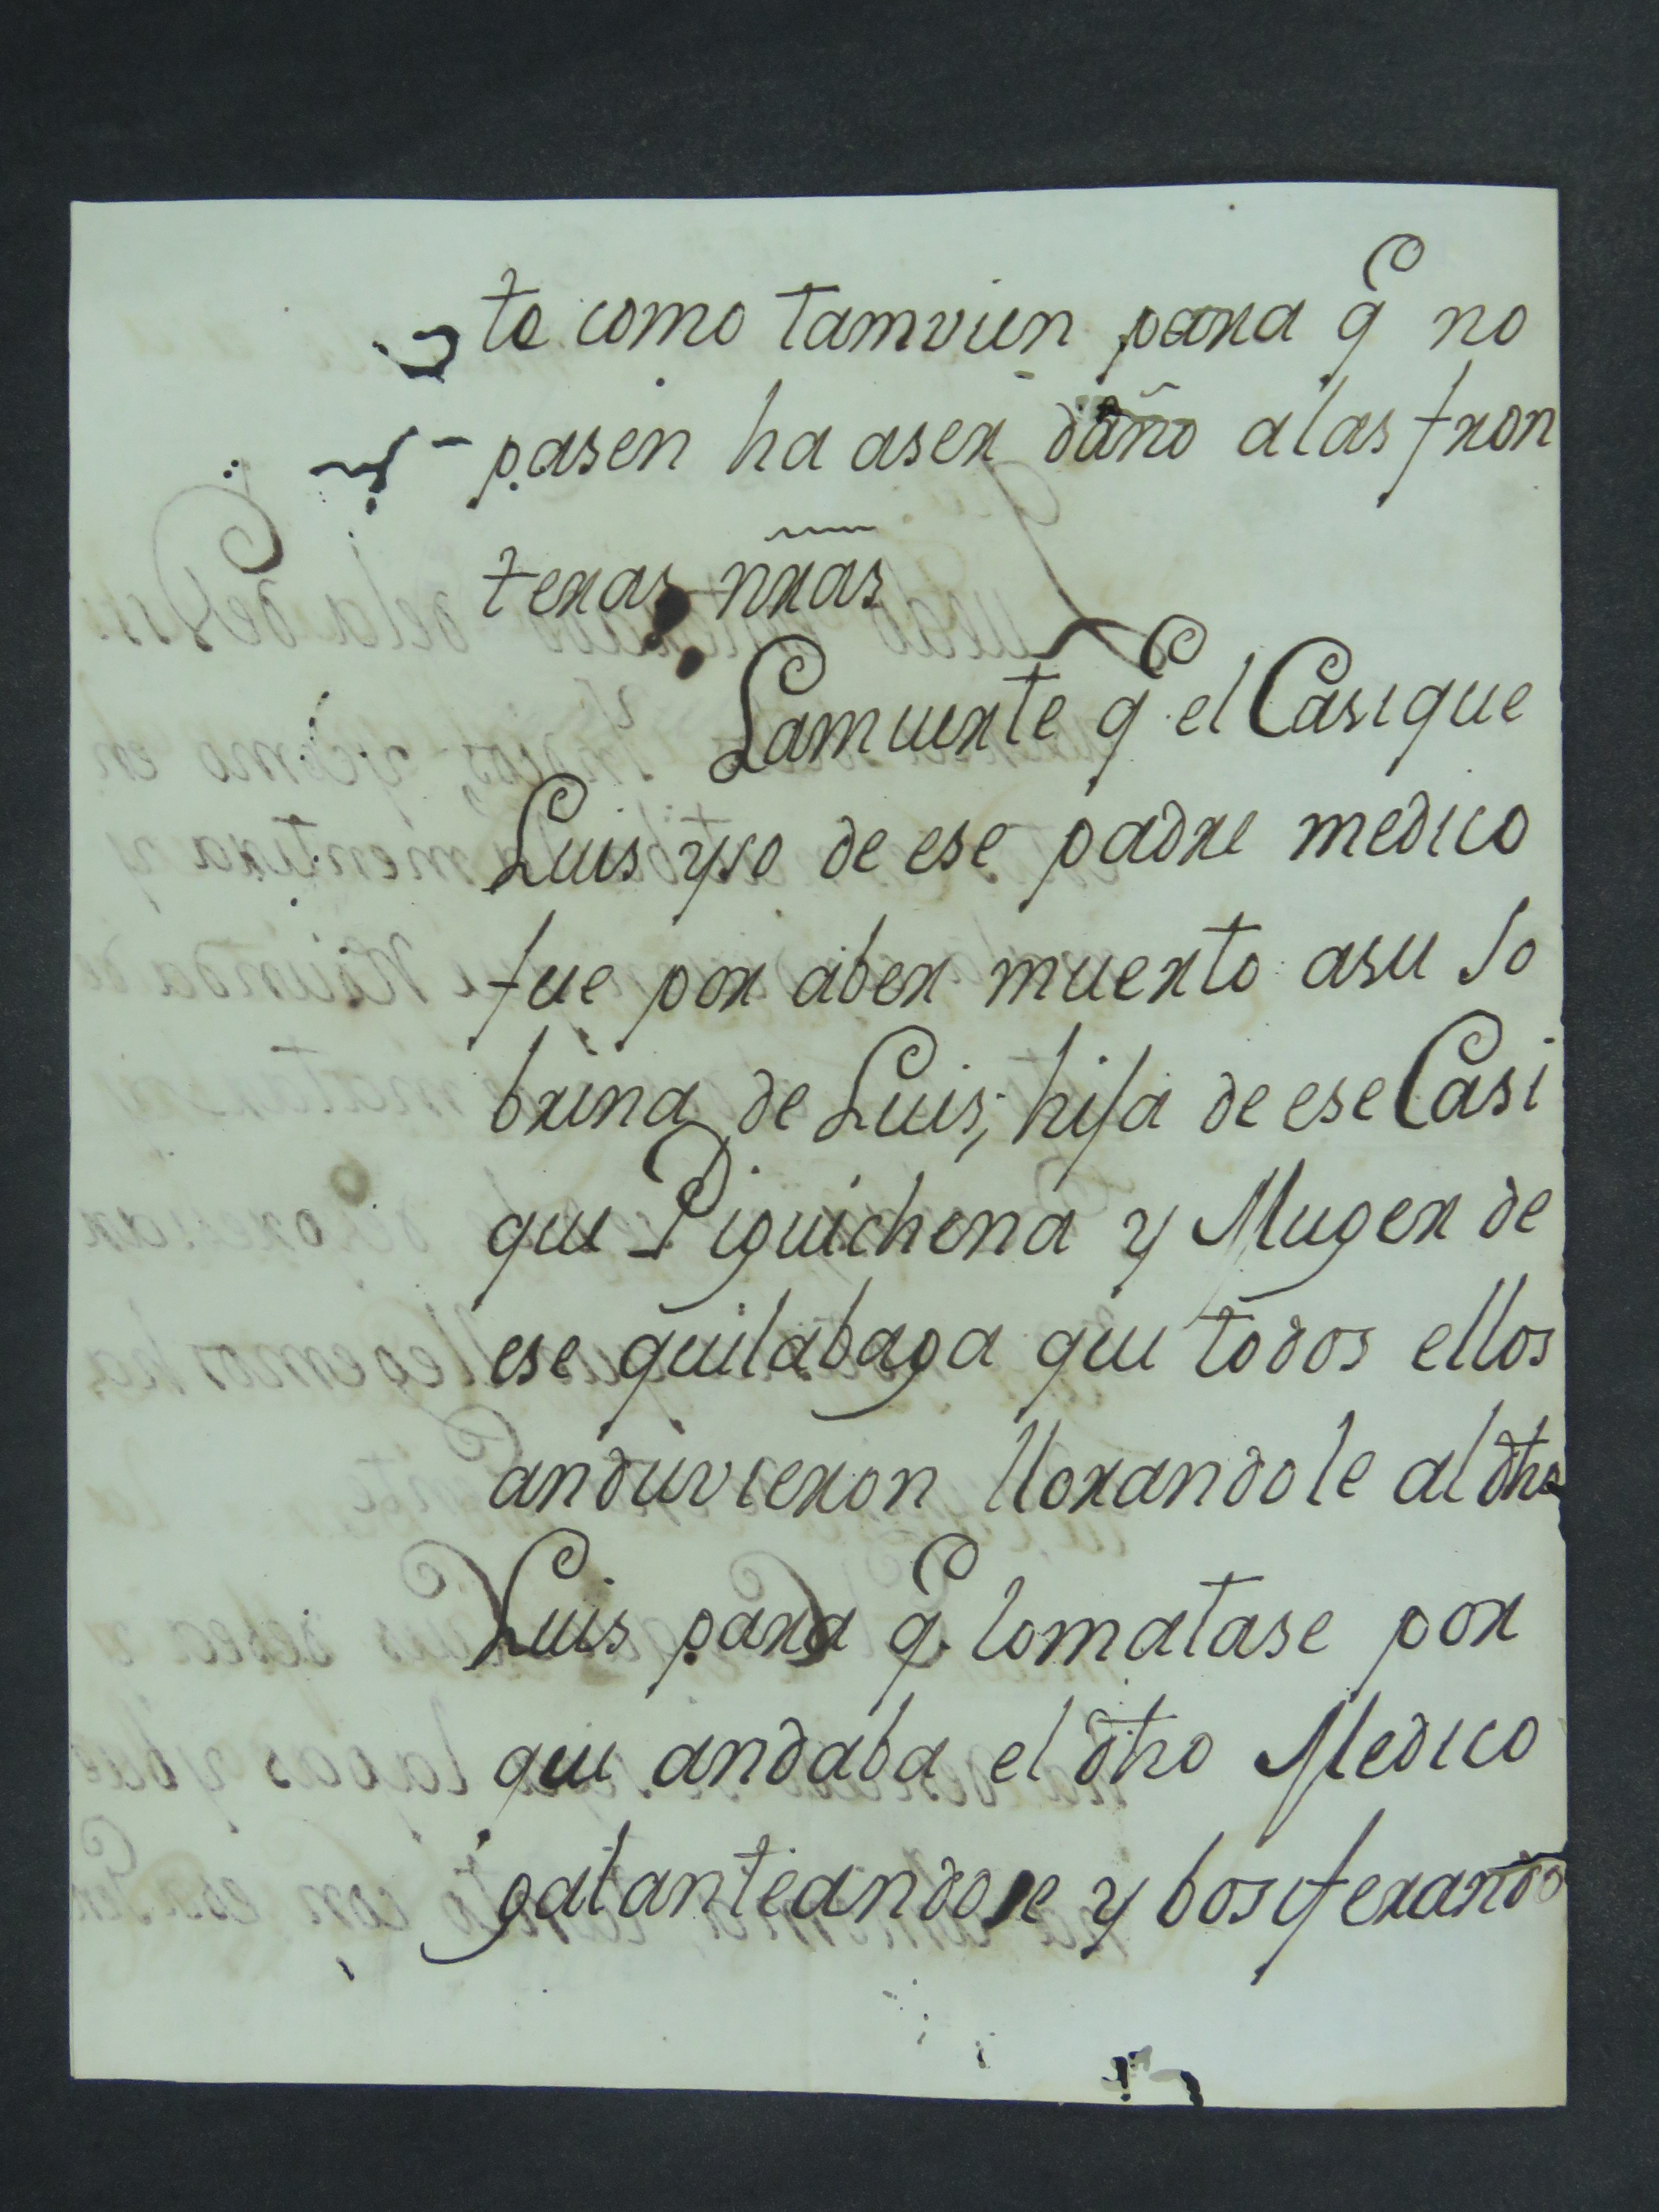 to como tamvien para q̃ no
pasen ha aser daño alas fron
teras nr̃as
Lamuerte q̃ el Casique
Luis yso de ese padre medico
fue por aber muerto asu So
brina de Luis; hija de ese Casi
que Piquichena y Muger de
ese quilabaga que todos ellos
anduvieron llorandole al dh̃o
Luis para q̃ lomatase por
que andaba el dh̃o Medico
galanteandose y bosiferando